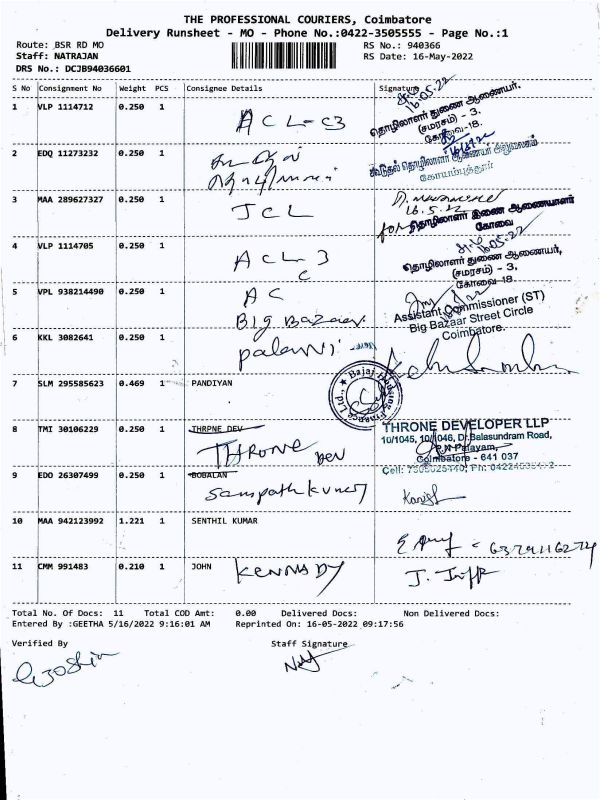 THE PROFESSIONAL COURIERS, Coimbatore
Delivery Runsheet - MO - Phone No.:0422-3505555 - Page No.:1
Route: BSR RD MO RS No.: 940366
Staff: NATRAJAN RS Date: 16-May-2022
DRS No.: DCJB94036601
S No Consignment No Weight PCS Consignee Details Signature
1 VLP 1114712 0.250 1 ACL-C3 16.05.22
தொழிலாளர் துணை ஆணையர்.
(சமரசம்) - 3.
கோவை-18.
2 EDQ 11273232 0.250 1
கோயம்புத்தூர்
3 MAA 289627327 0.250 1 JCL 16.5.22
for தொழிலாளர் இணை ஆணையாளர்
கோவை
4 VLP 1114705 0.250 1 ACL-3 16.05.22
C
தொழிலாளர் துணை ஆணையர்,
(சமரசம்) - 3,
கோவை-18.
5 VPL 938214490 0.250 1 AC
Big Bazaar
Assistant Commissioner (ST)
Big Bazaar Street Circle
Coimbatore.
6 KKL 3082641 0.250 1 palani
7 SLM 295585623 0.469 1 PANDIYAN
Bajaj Housing Finance Ltd.,
8 TMI 30106229 0.250 1 THRPNE DEV
THRONE DEV
THRONE DEVELOPER LLP
10/1045, 10/1046, Dr.Balasundram Road,
Coimbatore - 641 037
9 EDO 26307499 0.250 1 BOBALAN
Sampathkumar
10 MAA 942123992 1.221 1 SENTHIL KUMAR
11 CMM 991483 0.210 1 JOHN KENNADY
Total No. Of Docs: 11 Total COD Amt: 0.00 Delivered Docs: Non Delivered Docs:
Entered By :GEETHA 5/16/2022 9:16:01 AM Reprinted On: 16-05-2022 09:17:56
Verified By Staff Signature